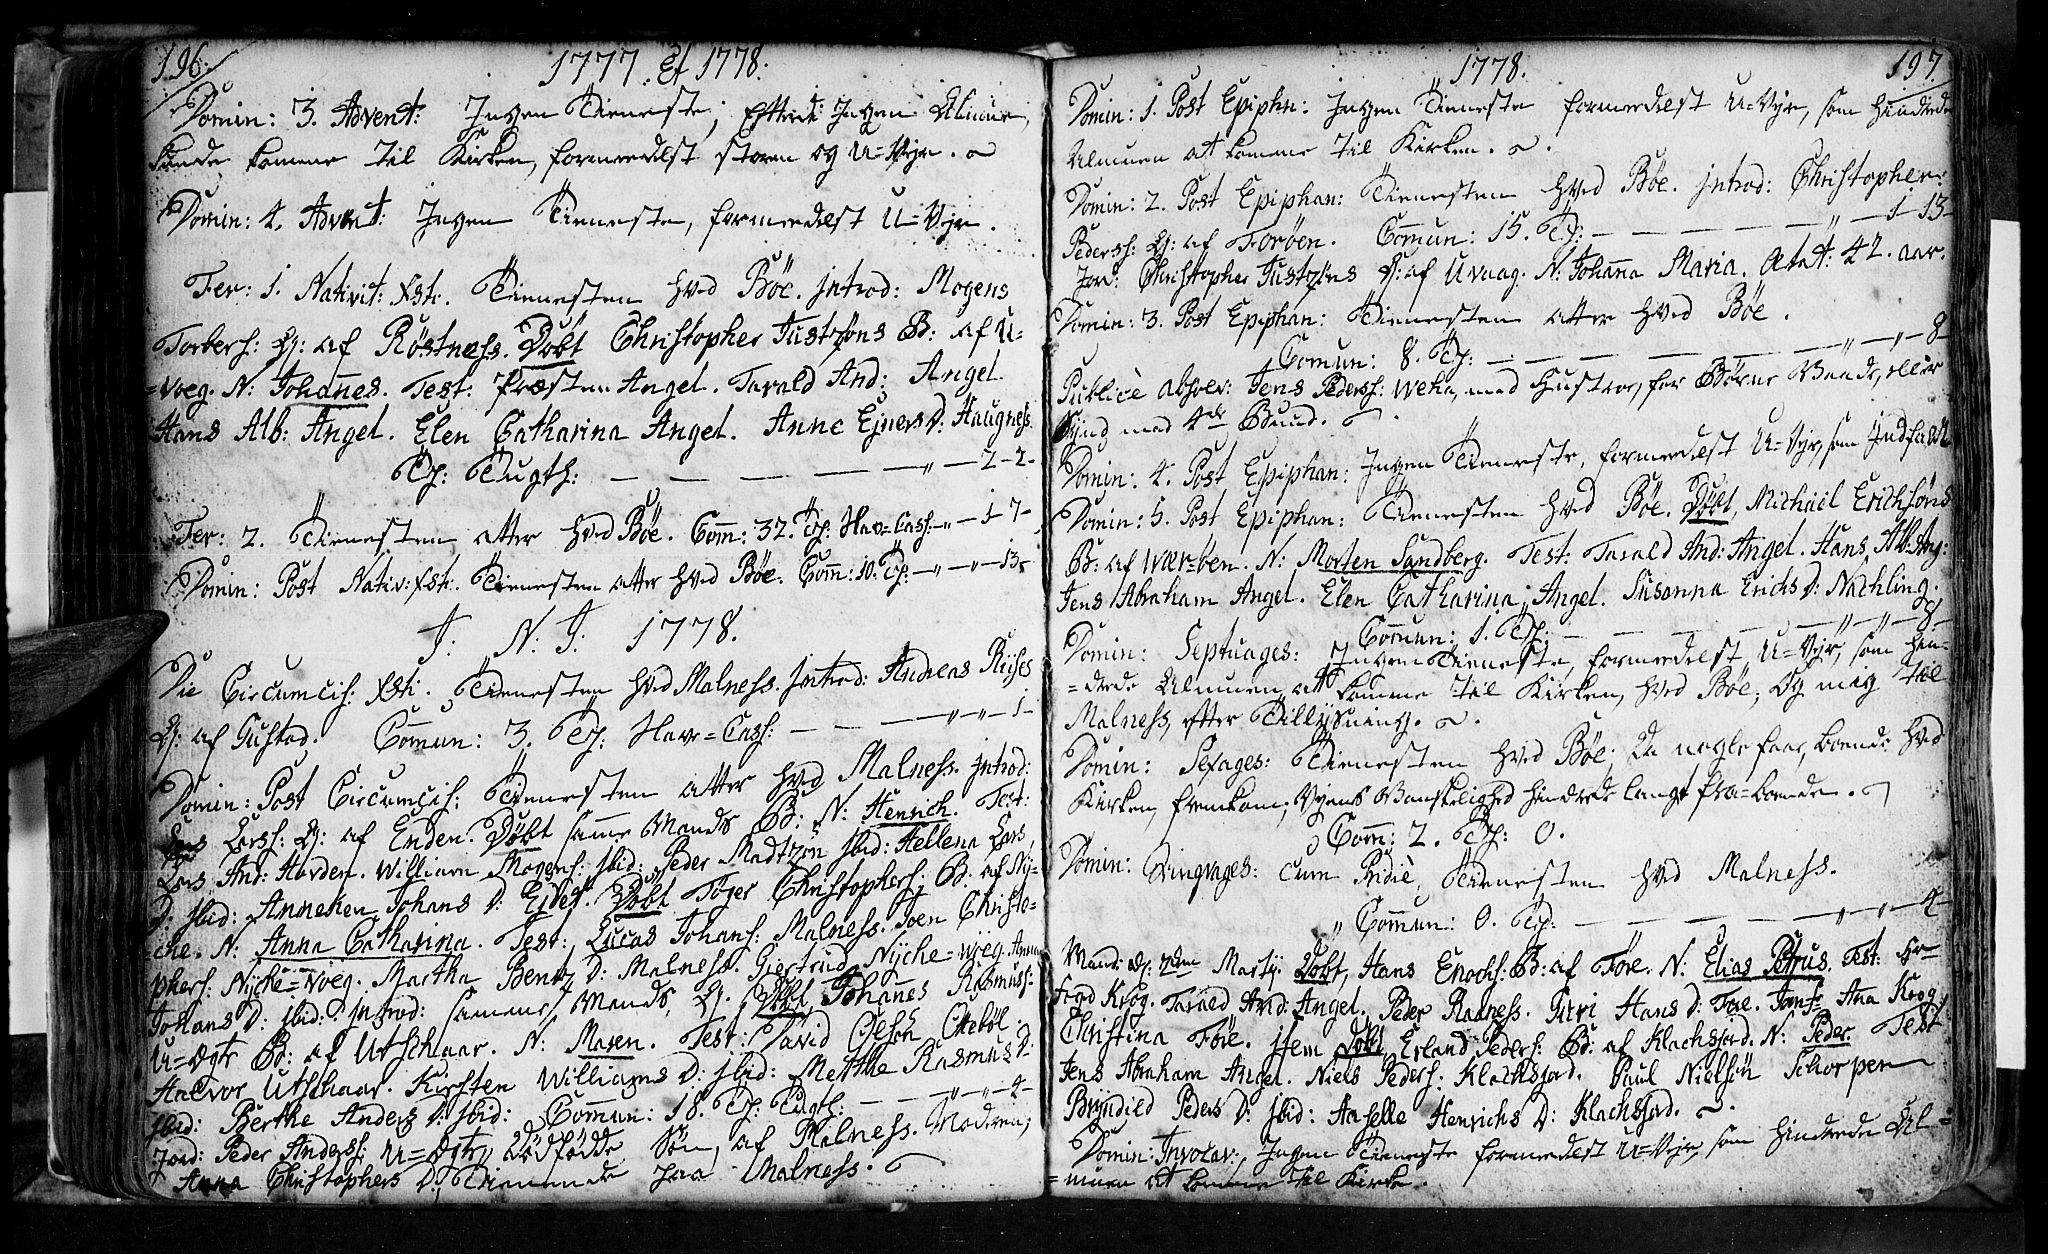 196.
1777. Et 1778.
Domin: 3. Advent: Ingen Tieneste; efterdi Ingen Almue
kunde komme til Kirken, formedelst storm og U=Vejr.
Domin: 4. Advent: Ingen Tieneste, formedelst U=Vejr.
Fer: 1. Nativit: Xsti. Tienesten hved Böe. Introd: Mogens
Torbers: Q: af Röstness. Döbt Christopher Justzöns B: af U-
=voeg. N: Johannes. Test: Præsten Angel. Tarald And: Angel.
Hans Alb: Angel. Elen Catharina Angel. Anne Ejners D: Haugness.
T: Tugth: — — — — „ — 2 - 2 -
Fer: 2. Tienesten atter hved Böe. Com: 32. T: Hav=Cass: — „ — 1 - 7 -
Domin: Post Nativ: Xsti. Tienesten atter hved Böe. Com: 10. T: — „ — „ — 13
J. N. J. 1778.
Die Circumcis: Xsti. Tienesten hved Malness. Introd: Andreas Riises
Q: af Gustad. Comun: 3. T: Hav=Cass: — — — „ — „ — 1 -
Domin: Post Circumcis: Tienesten atter hved Malness. Introd:
Lars Larss: Q: af Enden. Döbt samme Mands B: N: Henrich. Test:
Lars And: Hovden. William Mogens: Ibid: Peder Madtzön Ibid: Hellena Lars
D: Ibid: Anneken Johans D: Eidet. Döbt Töger Christophers: B: af Ny-
=che. N: Anna Catharina. Test: Lucas Johans: Malness. Joen Christo-
phers: Nyche=voeg. Martha Bentz D: Malness. Giertrud Nyche=vöeg. Anna
Johans D: Ibid: Introd: samme Mands Q: Döbt Johannes Rasmuss:
U=Ægte B: af Utschaar. N: Maren. Test: David Olsön Otteböl.
Halvor Utschaar. Kirsten Williams D: Ibid: Mettke Rasmus D:
Ibid: Berthe Anders D: Ibid: Comun: 18. T: Tugth: — — „ — „ — 4 -
Jord: Peder Anderss: U=Ægte, Dödfödde Sön, af Malness. Moderen,
Anna Christophers D: Tienende paa Malness.
1778.
197.
Domin: 1. Post Epiphn: Ingen Tieneste formedelst U=Vejr, som hindrede
Almuen at komme til Kirken.
Domin: 2. Post Epiphan: Tienesten hved Böe. Introd: Christopher
Peders: Q: af Foröen. Comun: 15. T: — — — — „ — 1 - 13 -
Jord: Christopher Justzöns Q: af Uvaag. N: Johanna Maria. Ætat: 42. aar.
Domin: 3. Post Epiphan: Tienesten atter hved Böe.
Comun: 8. T: — — — — — „ — „ — 8 -
Publicè absolv: Jens Peders: Weha, med Hustroe, for Börne Baade, eller
Synd med 4de Bund.
Domin: 4. Post Epiphan: Ingen Tieneste, formedelst U=Vejr, som Indfaldt
Domin: 5. Post Epiphan: Tienesten hved Böe. Döbt, Michael Erichsöns
B: af Wær=öen. N: Morten Sundberg. Test: Tarald And: Angel. Hans Alb: Ang:
Jens Abraham Angel. Elen Catharina Angel. Susanna Erichs D: Nachling.
Comun: 1. T: — — — — „ — „ — 8 -
Domin: Septuages: Ingen Tieneste, formedelst U=Vejr, som hin-
=drede Almuen, at komme til Kirken, hved Böe; Og mig til
Malness, efter Tillysning.
Domin: Sexages: Tienesten hved Böe; Da nogle faae, boende hved
Kirken, fremkom; Vejens Vanskelighed hindrede langt fra=boende.
Com: 2. T: 0.
Domin: Qvinqvages: cum Pridiè, Tienesten hved Malness.
Comun: 0. T: — — — — — „ — „ — 4 -
Mand: D: 2den Martÿ. Döbt, Hans Enochs: B: af Töre. N: Elias Petrus. Test: Hr-
Frid Krog. Tarald And: Angel. Peder Raaness. Guri Hans D: Töre. Jomf: Ana Krog,
Christina Töre. Item Döbt Erland Peders: B: af Klachsjord. N: Peder. Test
Jens Abraham Angel. Niels Peders: Klachsjord. Paul Nielsön Schorpen
Bryndild Peders D: Ibid: Aaselle Henrichs D: Klachsjord.
Domin: Invocav: Ingen Tieneste formedelst U=Vejr, som hindrede Al-
=muen at komme til Kirke.